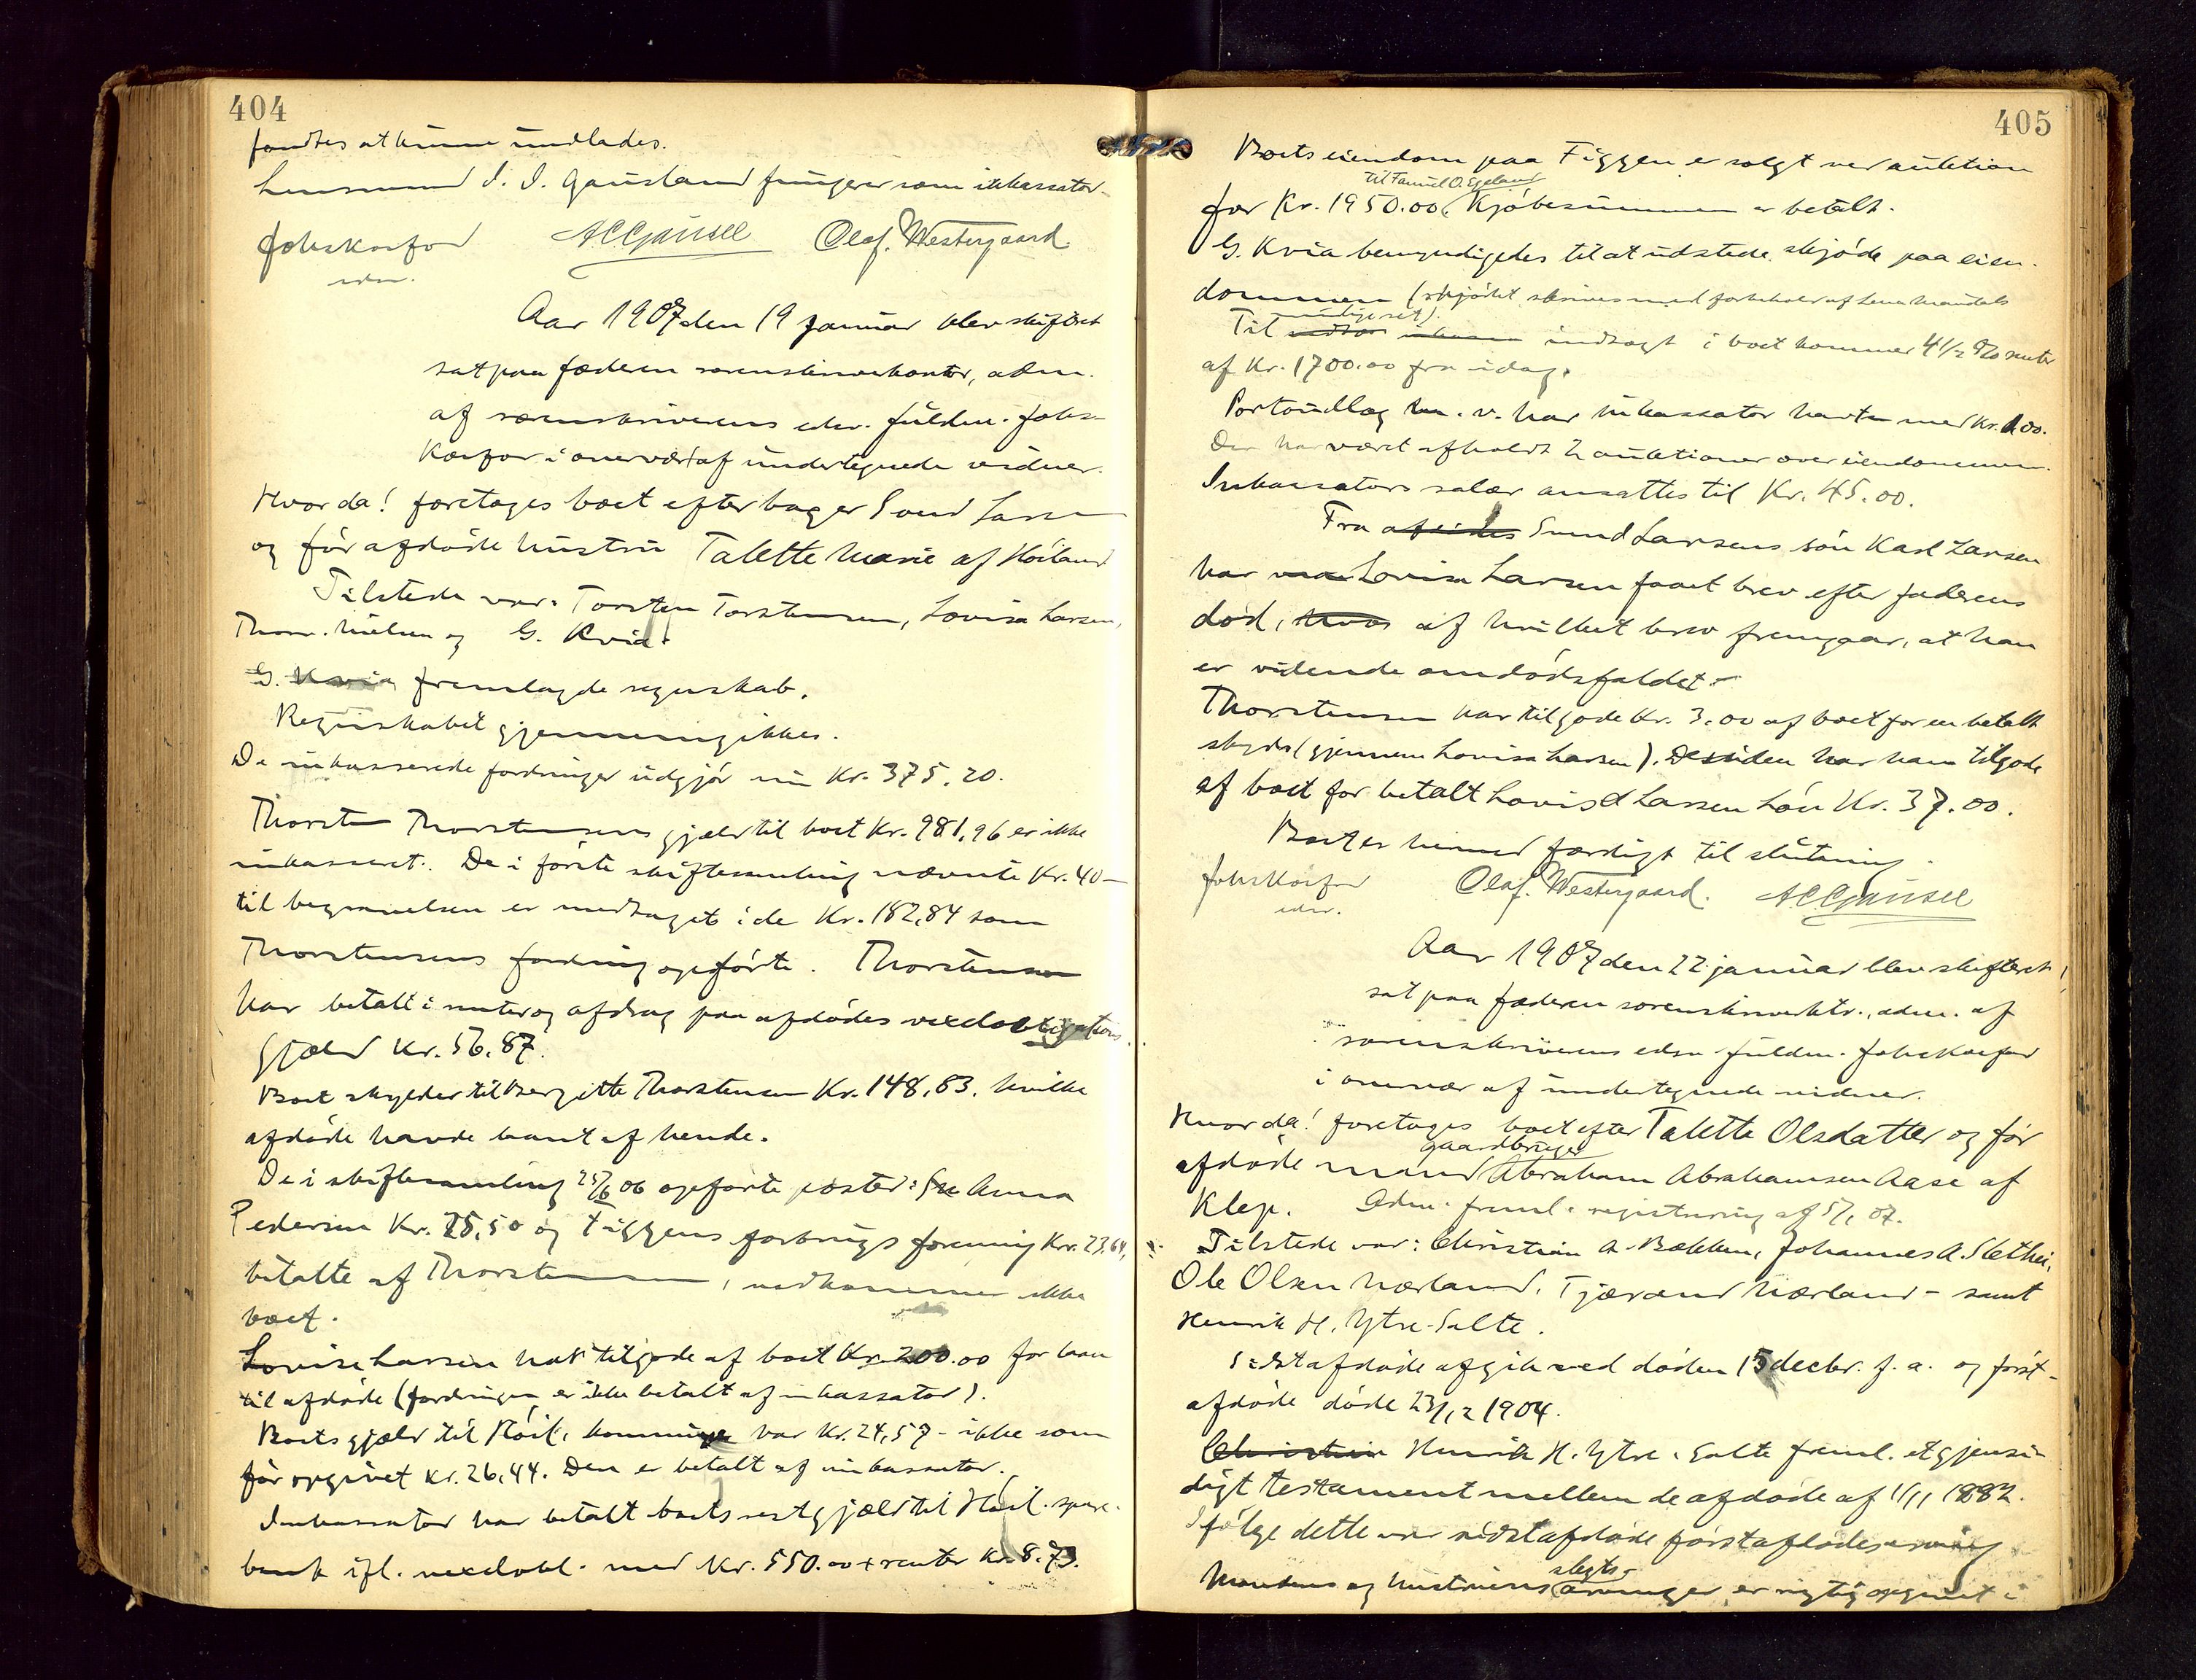 404
fandtes at kunne undlades.
Lensmand I. I. Gausland fungerer som inkassator.
Johs Korfor ACGjausel Olaf. Westergaard
edsv.
Aar 1907 den 19 januar blev skifteret
sat paa Jæderen sorenskriverkontor, adm.
af sorenskriverens edsv. fuldm. Johs
Korfor i overvær af undertegnede vidner.
Hvorda! foretages boet efter bager Svend Larsen
og før afdøde hustru Talette Marie af Høiland
Tilstede var: Torsten Torstensen, Lovise Larsen,
Thom. Nielsen og G. Kvia.
G. Kvia fremlagde regnskab.
Regnskabet gjennemgikkes.
De inkasserede fordringer udgjør nu Kr. 375.20.
Thorsten Thorstensens gjæld til boet Kr. 981,96 er ikke
inkasseret. De i første skiftesamling nævnte Kr. 40 –
til begravelsen er medtaget i de Kr. 182,84 som
Thorstensens fordring opførte. Thorstensen
har betalt i renter og afdrag paa afdødes vexelobligations
gjæld Kr. 56,87.
Boet skylder til Bergitte Thorstensen Kr. 148,63, hvilke
afdøde havde laant af hende.
De i skiftesamling 25/6 06 opførte poster: Anna
Pedersen Kr. 25,50 og Figgens forbrugsforening Kr. 23.64,
betalte af Thorstensen, vedkommer ikke
boet.
Lovise Larsen har tilgode af boet Kr. 200.00 for laan
til afdøde (fordringen er ikke betalt af inkassator).
Boets gjæld til Høil. kommune var Kr. 24,57 – ikke som
før opgivet Kr. 26,44. Den er betalt af inkassator.
Inkassator har betalt boets restgjæld til Høil. spare-
bank ifl. vexelobl. med Kr. 550.00 + renter Kr. 8.73.
405
Boets eiendom paa Figgen er solgt ved auktion
til Tønnes O. Egeland
for Kr. 1950.00. Kjøbesummen er betalt.
G. Kvia bemyndigedes til at udstede skjøde paa eien-
dommen (skjødet skrives med forbehold af
Til indtægt i boet kommer 4 1/2 % renter
af Kr. 1700.00 fra idag.
Portoudlæg m. v. har inkassator havt med Kr. 1.00.
Der har været afholdt 2 auktioner over eiendommen.
Inkassators salær ansattes til Kr. 45.00.
Fra Svend Larsens søn Karl Larsen
har Lovise Larsen faaet brev efter faderens
død, hvor af hvilket brev fremgaar, at han
er vidende om dødsfaldet.
Thorstensen har tilgode Kr. 3.00 af boet for en betalt
skyds (gjennem Lovise Larsen). Desuden har han tilgode
af boet for betalt Lovise Larsen løn Kr. 37.00.
Boet er hermed færdigt til slutning.
Johs Korfor Olaf. Westergaard. ACGjausel
edsv.
Aar 1907 den 22 januar blev skifteret
sat paa Jæderen sorenskriverktr., adm. af
sorenskriverens edsv. fuldm. Johs Korfor
i overvær af undertegnede vidner.
Hvorda! foretages boet efter Talette Olsdatter og før
gaardbruger
afdøde mand Abraham Abrahamsen Aase af
Klep. Adm. freml. registrering af 5/1 07.
Tilstede var: Christian A. Bækken, Johannes A. Slethei,
Ole Olsen Nærland, Tjærand Nærland – samt
Henrik H. Ytre-Salte.
Sidstafdøde afgik ved døden 15 decbr. f. a. og først-
afdøde døde 23/12 1904.
Christian Henrik H. Ytre-Salte freml. et gjensi-
digt testament mellem de afdøde af 1/11 1882.
Ifølge dette var sidstafdøde førstafdødes arving
slegts-
Mandens og hustruens arvinger er rigtig opgivet i